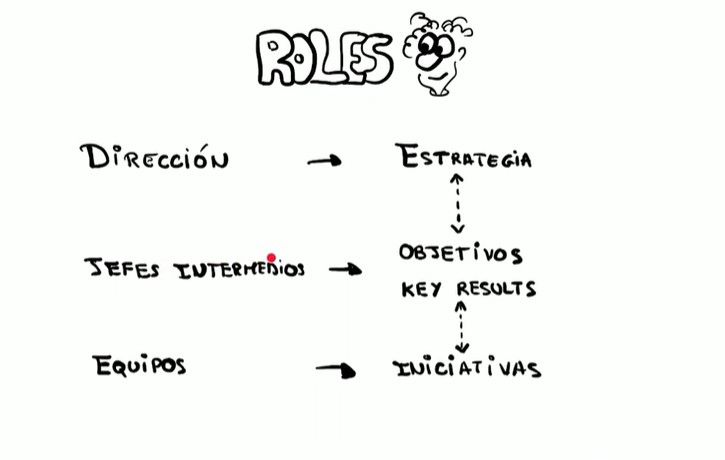 ROLES
Dirección → Estrategia
Jefes intermedios → Objetivos
Key results
Equipos → Iniciativas